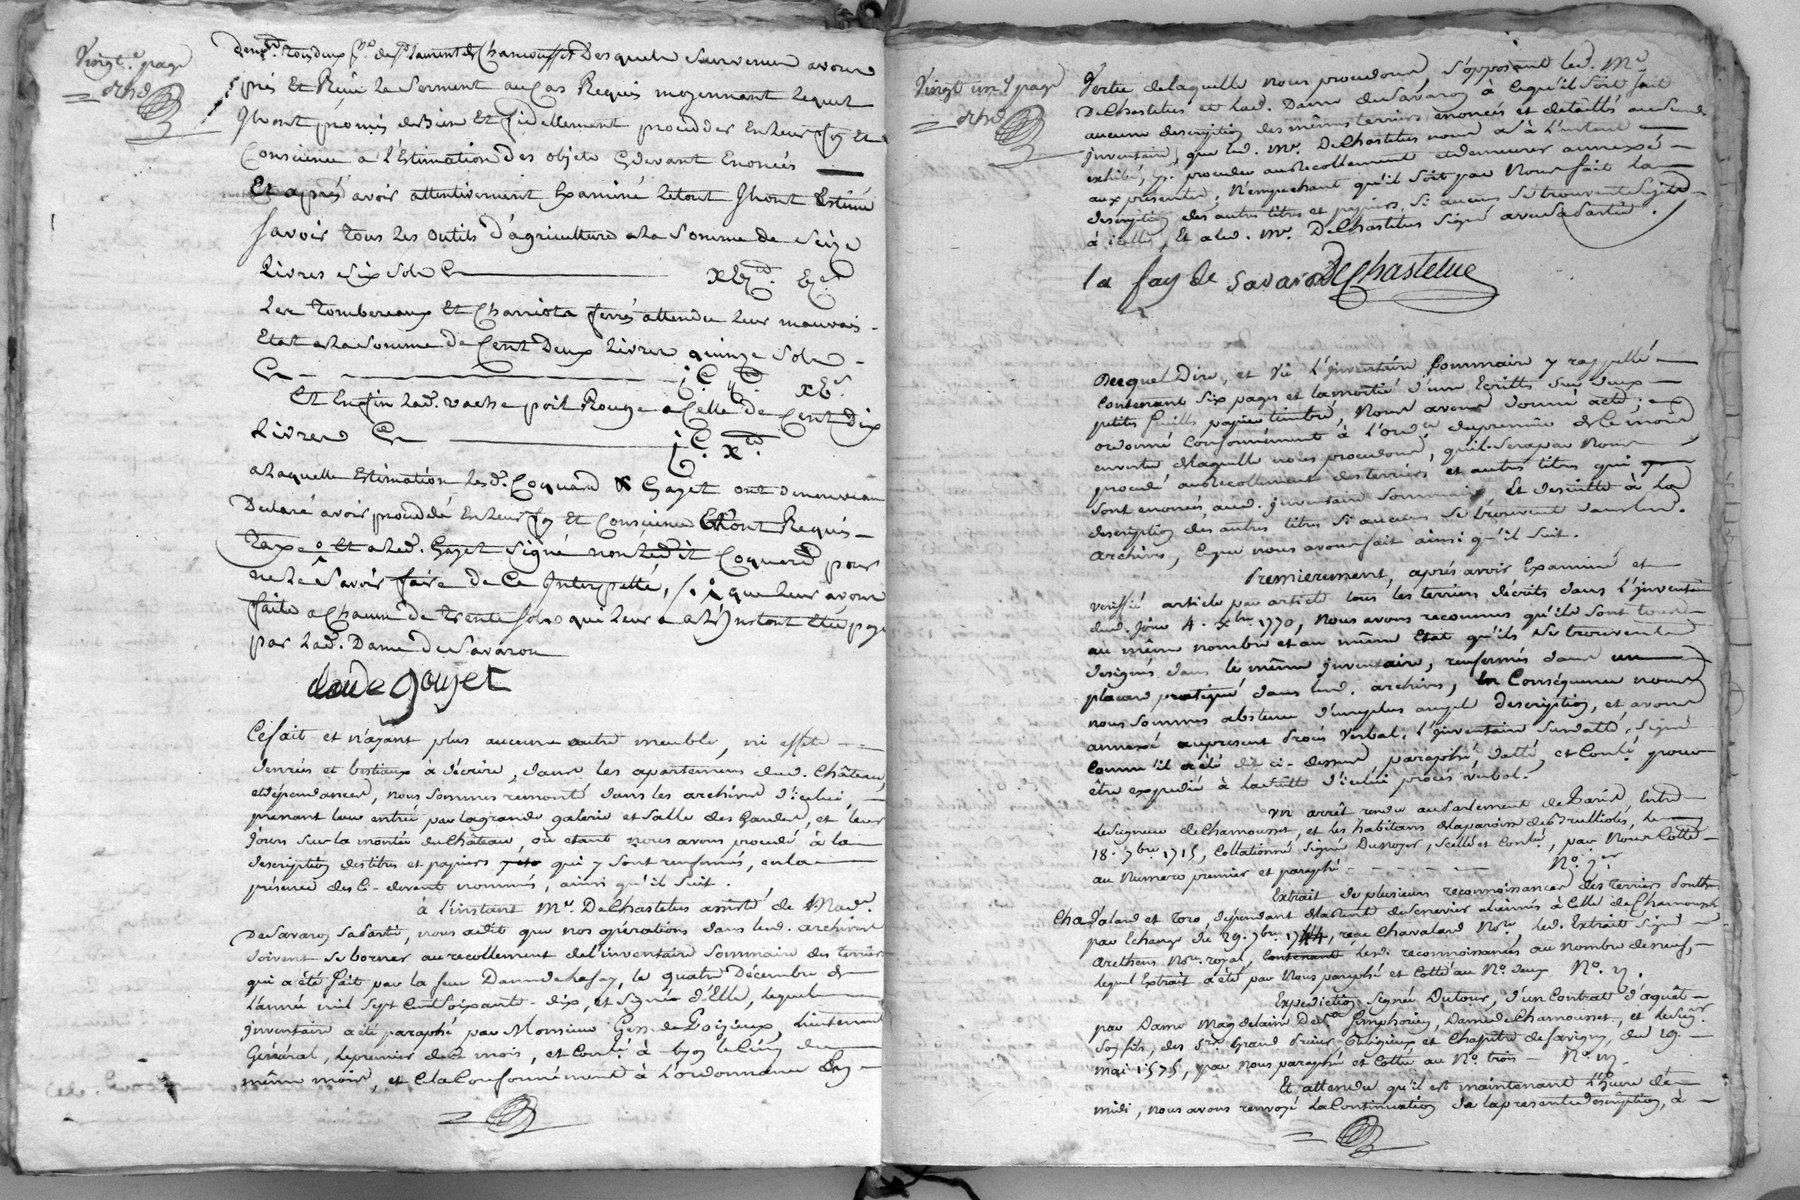 Vingt.e page
dernd.t tous deux h.ts de S.t Laurent de Chamousset Desquels Survenus avons
pris Et Reçu le Serment au Cas Requis moyennant lequel
Ilsont promis de bien Et fidellement proceder En leur foy Et
Conscience a l'Estimation des objets Cydevant Enoncés
Et après avoir attentivement Examiné letout Ilsont Estimé
savoir tous les outils d'agriculture ala Somme de Seize
livres Six Sols Cy
Les Tombereaux Et Charriots ferrés attendu leur mauvais
Etat ala Somme de Cent Deux livres quinze Sols
Cy
Et Enfin lad. vache poil Rouge a Celle de Cent Dix
livres Cy
alaquelle Estimation lesd. Coquard & Gayet ont denouveau
Declaré avoir procédé En leur foy Et Conscience Et ont Requis
taxe Et aled. Gayet Signé non ledit Coquard pour
ne le Savoir faire de Ce Interpellé, que leur avons
faite a Chacun de trente sols qui leur a a l'Instant Eté payé
par lad. Dame de Savaron
claude gayet
Ce fait et n'ayant plus aucuns autre meuble, ni effets
denrées et bestiaux à décrire, dans les apartemens dud. Château
et dépendances, nous sommes remonté dans les archives d'icelui,
prenant leur entrée par la grande galerie et Salle des Gardes, et leur
jours sur la montée du Château, où etant nous avons procedé à la
description des titres et papiers qui y sont renfermés, en la
présence des Ci-devant nommés, ainsi qu'il suit.
à l'instant M.r De Chastelus assisté de Mad.e
De Savaron Sa Partie, nous a dit que nos opérations dans lesd. archives
doivent se borner au recollement de l'inventaire Sommaire des terriers
qui a été fait par la feue Dame de lafay, le quatre Décembre de
l'année mil Sept Cent Soixante-dix, et Signée d'Elle, lequel
inventaire a été paraphé par Monsieur Gesse de Poizieux, lieutenant
Général, le premier de ce mois, et Contlé à Lyon le Cinq du
même mois, et Cela Conformément à l'ordonnance En
Vingt un.e page
Vertu de laquelle nous procedons, s'opposant led. M.r
De Chastelus et lad. Dame de Savaron à cequ'il soit fait
aucune description des mêmes terriers énoncés et détaillés au Susd.
Inventaire, que led. M.r De Chastelus nous a à l'instant
exhibé, pr. proceder au Recollement et demeurer annexé
aux présentes, n'empechant qu'il soit par Nous fait la
description des autres titres et papiers si aucuns se trouvent
à icelles, Et a led. M.r De Chastelus signé avec sa Partie.
la fay de Savaron De Chastelus
Duquel Dire, et Vû l'inventaire Sommaire y rappellé
Contenant Six pages et la moitié d'une Ecrittes sur deux
petits feuilles papier timbré, Nous avons donné acte;
ordonné Conformément à l'ord.ce du premier de ce mois
en vertu de laquelle nous procedons, qu'il sera par Nous
procedé au Recollement des terriers et autres titres qui
sont enoncés aud. Inventaire Sommaire Et desuitte à la
description des autres titres si aucuns se trouvent dans lesd.
archives, Ceque nous avons fait ainsi qu'il suit.
Premierement, après avoir Examiné et
verifié article par article tous les terriers décrits dans l'inventaire
dud. jour 4. xbre 1770, nous avons reconnus qu'ils sont tous
au même nombre et au même Etat qu'ils se trouvent
designés dans le même inventaire, renfermés dans un
placard pratiqué dans lesd. archives, En Conséquence nous
nous sommes abstenu d'une plus ample description, et avons
annexé au present Procès verbal, l'inventaire Susdatté, signé
Comme il a été dit ci-dessus, paraphé, datté, et Contlé, pour
être expedié à la suitte d'icelui procès verbal.
Un arrêt rendu au Parlement de Paris, Entre
le Seigneur de Chamousset, et les habitans de la paroisse des Brulliolés, le
18. 7bre 1715, Collationné Signé Dunoyer, Scellé et Contlé, par Nous Cotté
au Numero premier et paraphé N.o 1.er
Extrait de plusieurs reconnoissances des terriers
Chavaland et Toro, dépendant de la rente du Senevier alienées à Celle de Chamousset
par Echange du 29. 7bre 1744, reçu Chavaland No.re led. Extrait signé
Arethens No.re royal, Contenant lesd. reconnoissances au nombre de neuf,
lequel Extrait a été par Nous paraphé et Cotté au N.o deux N.o 2.
Expedition signée Dutour, d'un Contrat d'aquêt
par Dame Magdelaine De St Simphorien, Dame de Chamousset, et le Seig.r
Son fils, des Srs. Grand Prieur Religieux et Chapitre de Savigny, du 29.
mai 1575, par Nous paraphé et Cotté au N.o trois N.o 3.
Et attendu qu'il est maintenant l'heure de
midi, nous avons renvoyé la Continuation de la presente description, à